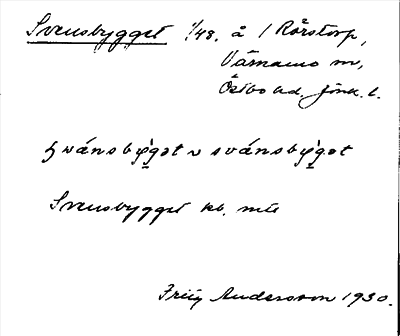 Svensbygget 1/48. å 1 Rörstorp,
Värnamo sn,
Östbo hd. Jönk. l.
swánsby̱gət ~ svánsby̱gət
Svensbygget kb.
Andersson 1930.